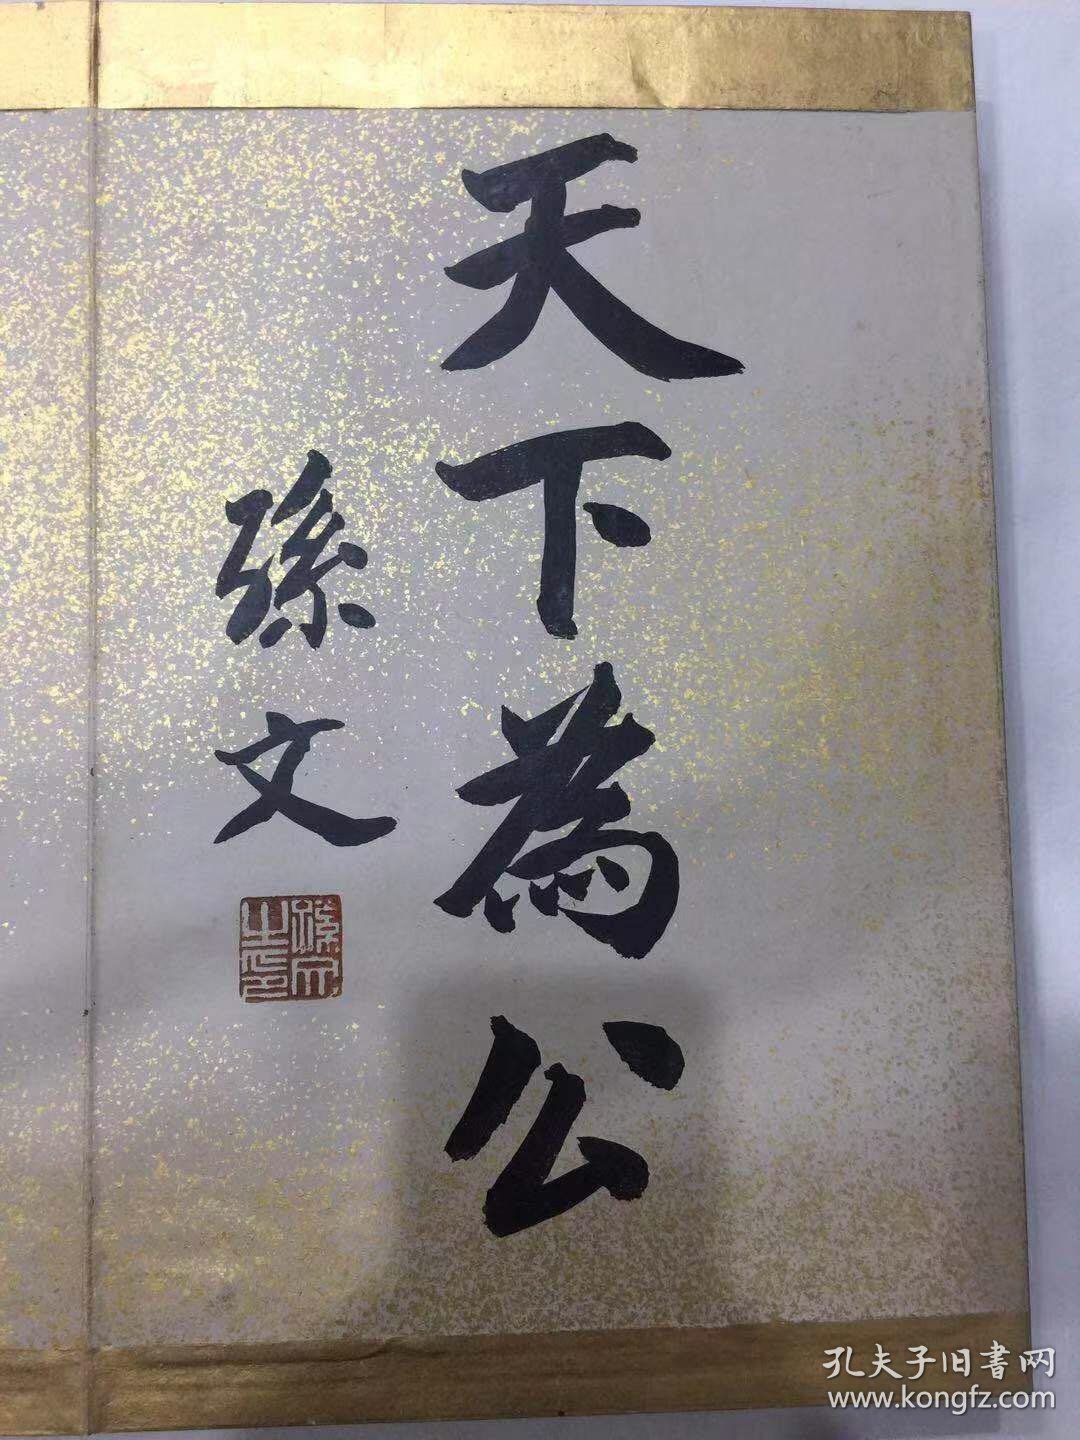 天下為公
孫文
孫文之印
孔夫子旧書网
www.kongfz.com